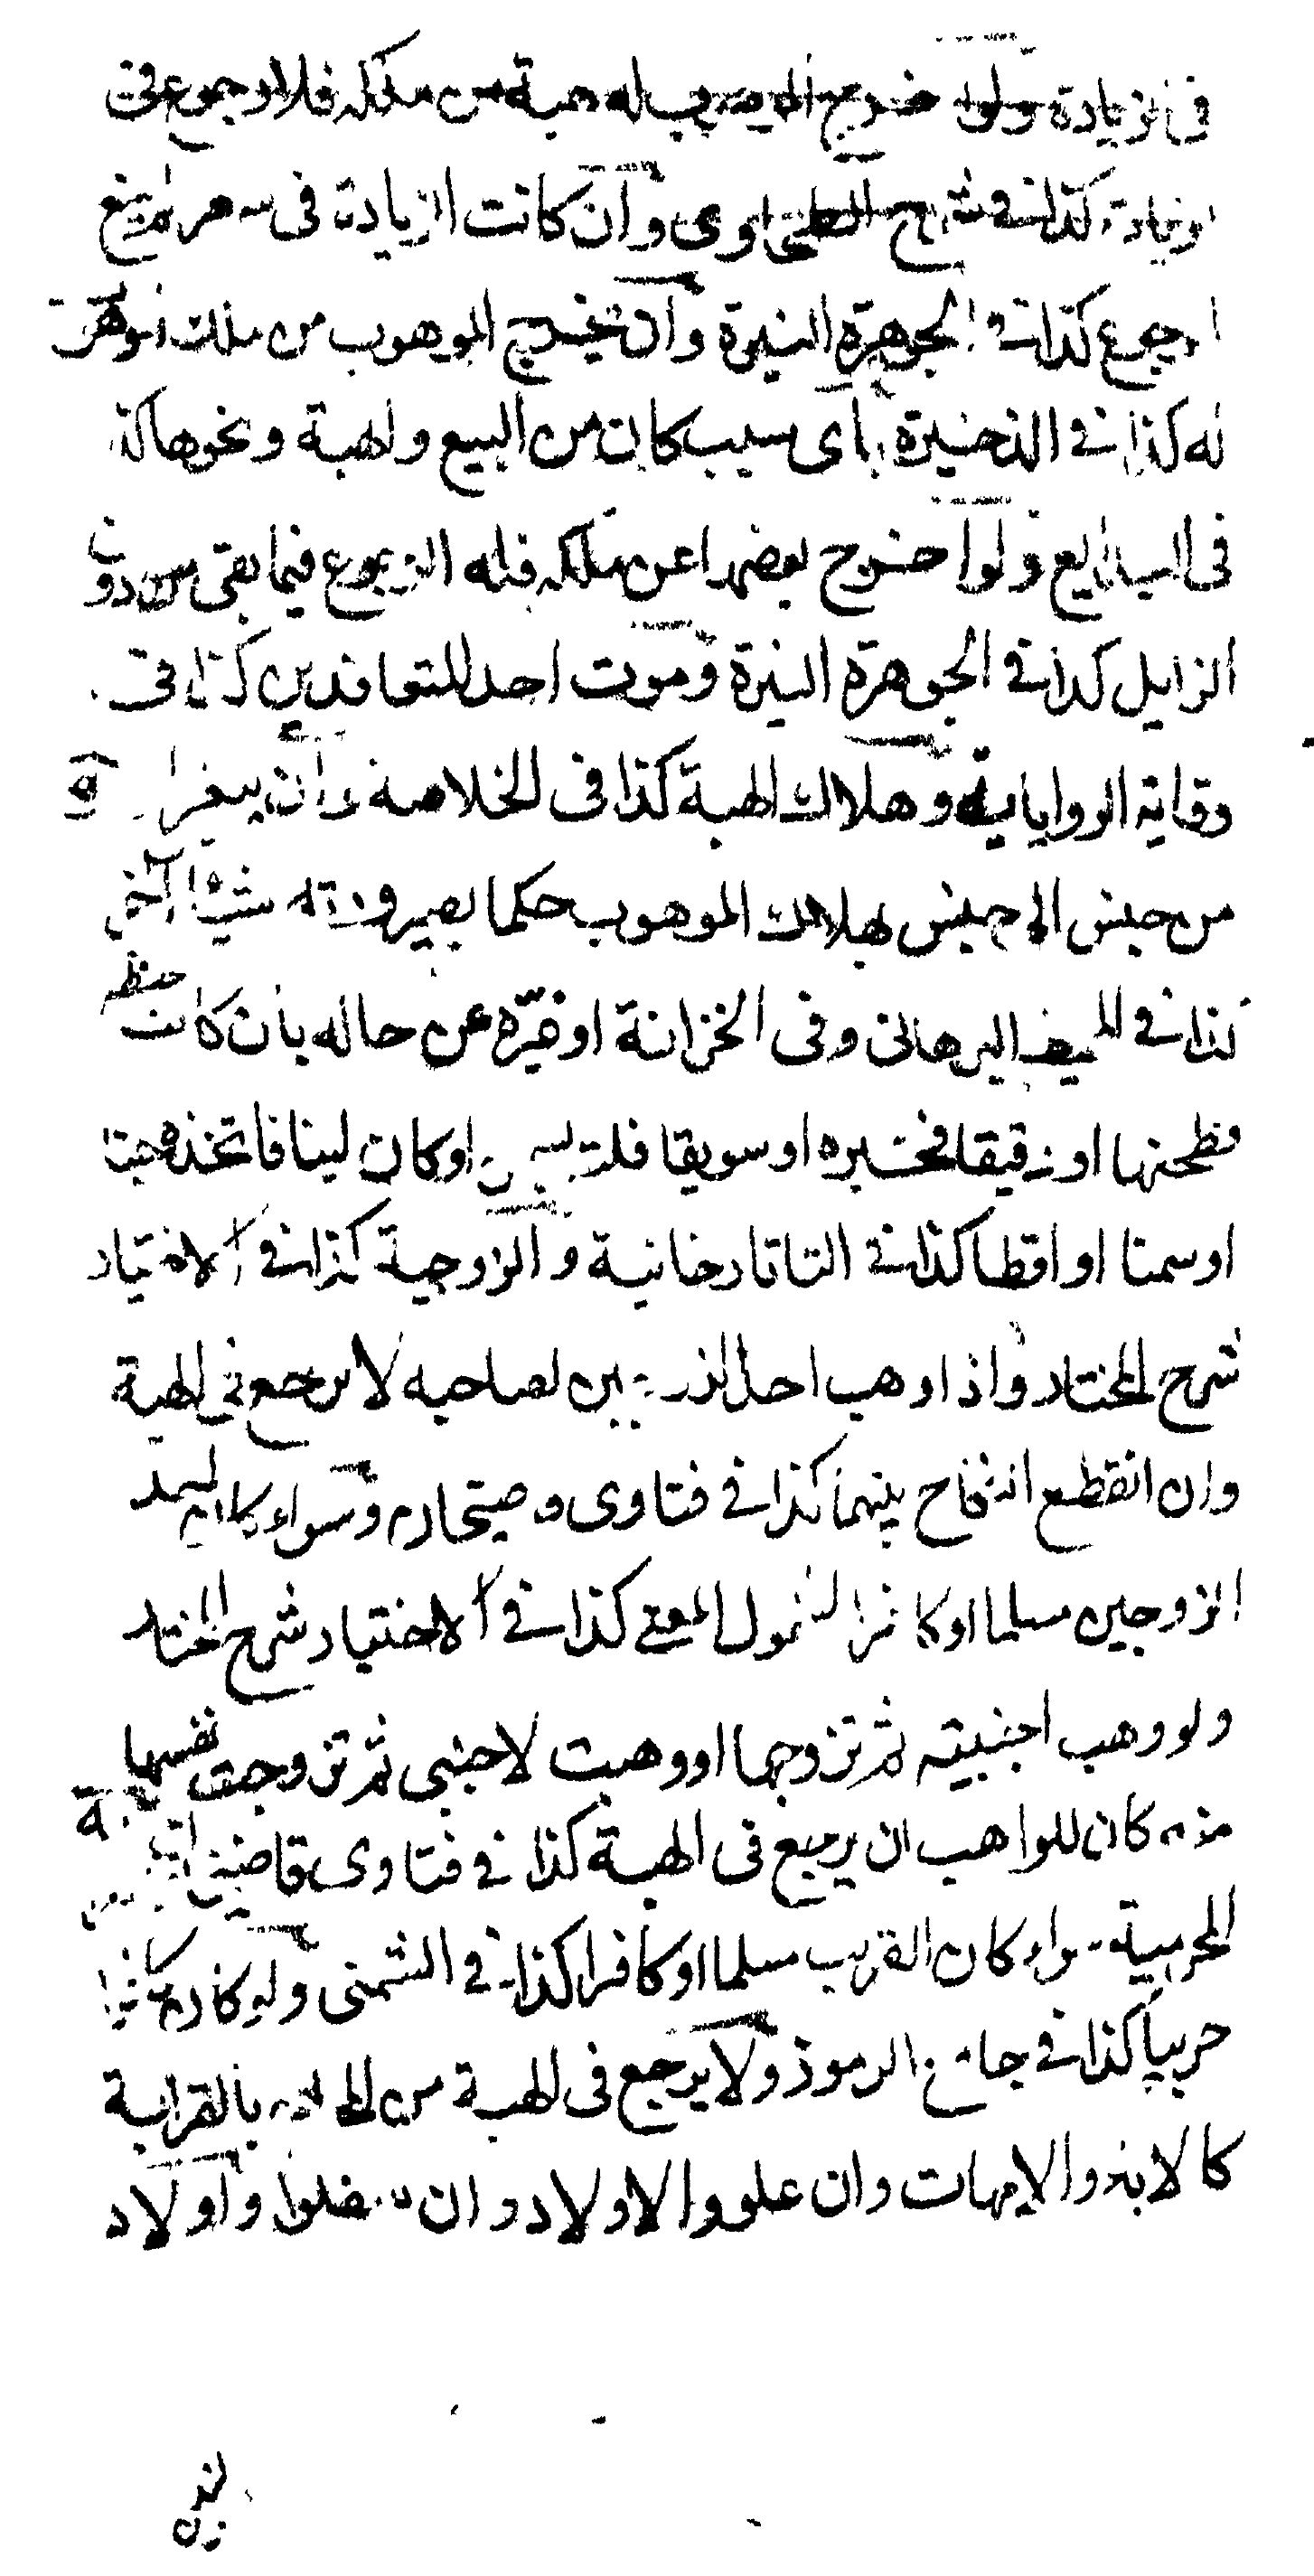 في الزيادة ولو اخرج الموهوب له هبة من ملكه فلا رجوع في
الزيادة كذا في شرح الطحاوي وان كانت الزيادة في سعر لم يمنع
الرجوع كذا في الجوهرة النيرة وان يخرج الموهوب من ملك الموهوب
له كذا في الذخيرة باى سبب كان من البيع والهبة ونحوها كذا
في البدايع ولو اخرج بعضها عن ملكه فله الرجوع فيما بقى من دون
الزايل كذا في الجوهرة النيرة وموت احد المتعاقدين كذا في
وقاية الرواياية وهلاك الهبة كذا في الخلاصة وان يتغير
من جنس الى جنس لهلاك الموهوب حكما بصيرورته شيئا آخر
كذا في المحيط البرهاني وفي الخزانة او غيره عن حاله بان كانت حنطة
فطحنها او دقيقا فخبزه او سويقا فلته بسمن او كان لبنا فاتخذه جبنا
او سمنا او اقطا كذا في التاتارخانية والزوجية كذا في الاختيار
شرح المختار واذا وهب احد الزوجين لصاحبه لا يرجع في الهبة
وان انقطع النكاح بينهما كذا في فتاوى قاضيخان وسواء كان احد
الزوجين مسلما او كافرا لشمول المعنى كذا في الاختيار شرح المختار
ولو وهب اجنبية ثم تزوجها او وهبت لاجنبي ثم تزوجت نفسها
منه كان للواهب ان يرجع في الهبة كذا في فتاوى قاضيخان
المحرمية سواء كان القريب مسلما او كافرا كذا في الشمني ولو كان كافرا
حربيا كذا في جامع الرموز ولا يرجع في الهبة من المحارم بالقرابة
كالاباء والامهات وان علوا والاولاد وان سفلوا واولاد